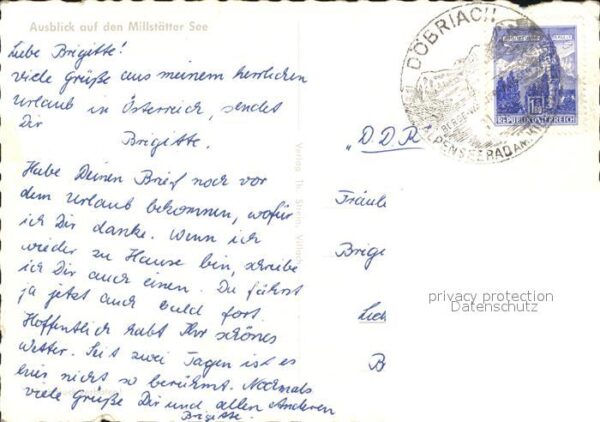 Ausblick auf den Millstätter See
Liebe Brigitte!
viele Grüße aus meinem herrlichen
Urlaub in Österreich, sendet
Dir
Brigitte.
Habe Deinen Brief noch vor
dem Urlaub bekommen, wofür
ich Dir danke. Wenn ich
wieder zu Hause bin, schreibe
ich Dir auch einen. Du fährst
ja jetzt auch bald fort.
Hoffentlich habt Ihr schönes
Wetter. Seit zwei Tagen ist es
hier nicht so berühmt. Nochmals
viele Grüße Dir und allen Anderen
Brigitte.
Verlag
DÖBRIACH
ALPENSEEBAD AM
REPUBLIK ÖSTERREICH
"D.D.R"
Fräule
Brige
B
privacy protection
Datenschutz